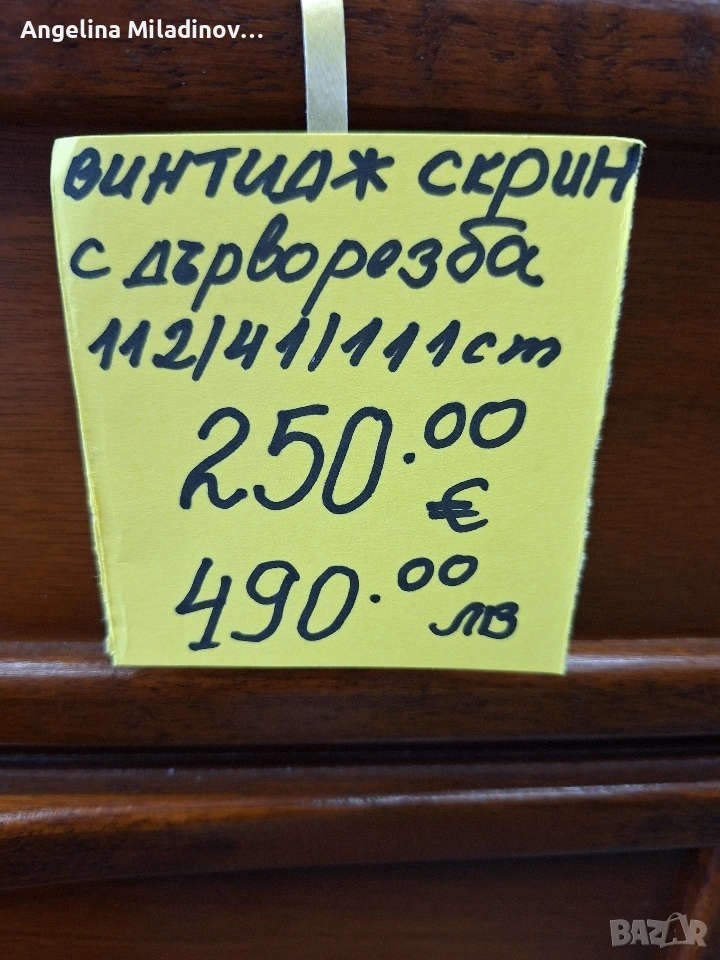 Angelina Miladinov...
винтидж скрин
с дърворезба
112/41/111 cm
250.00
€
490.00
лв
BAZAR